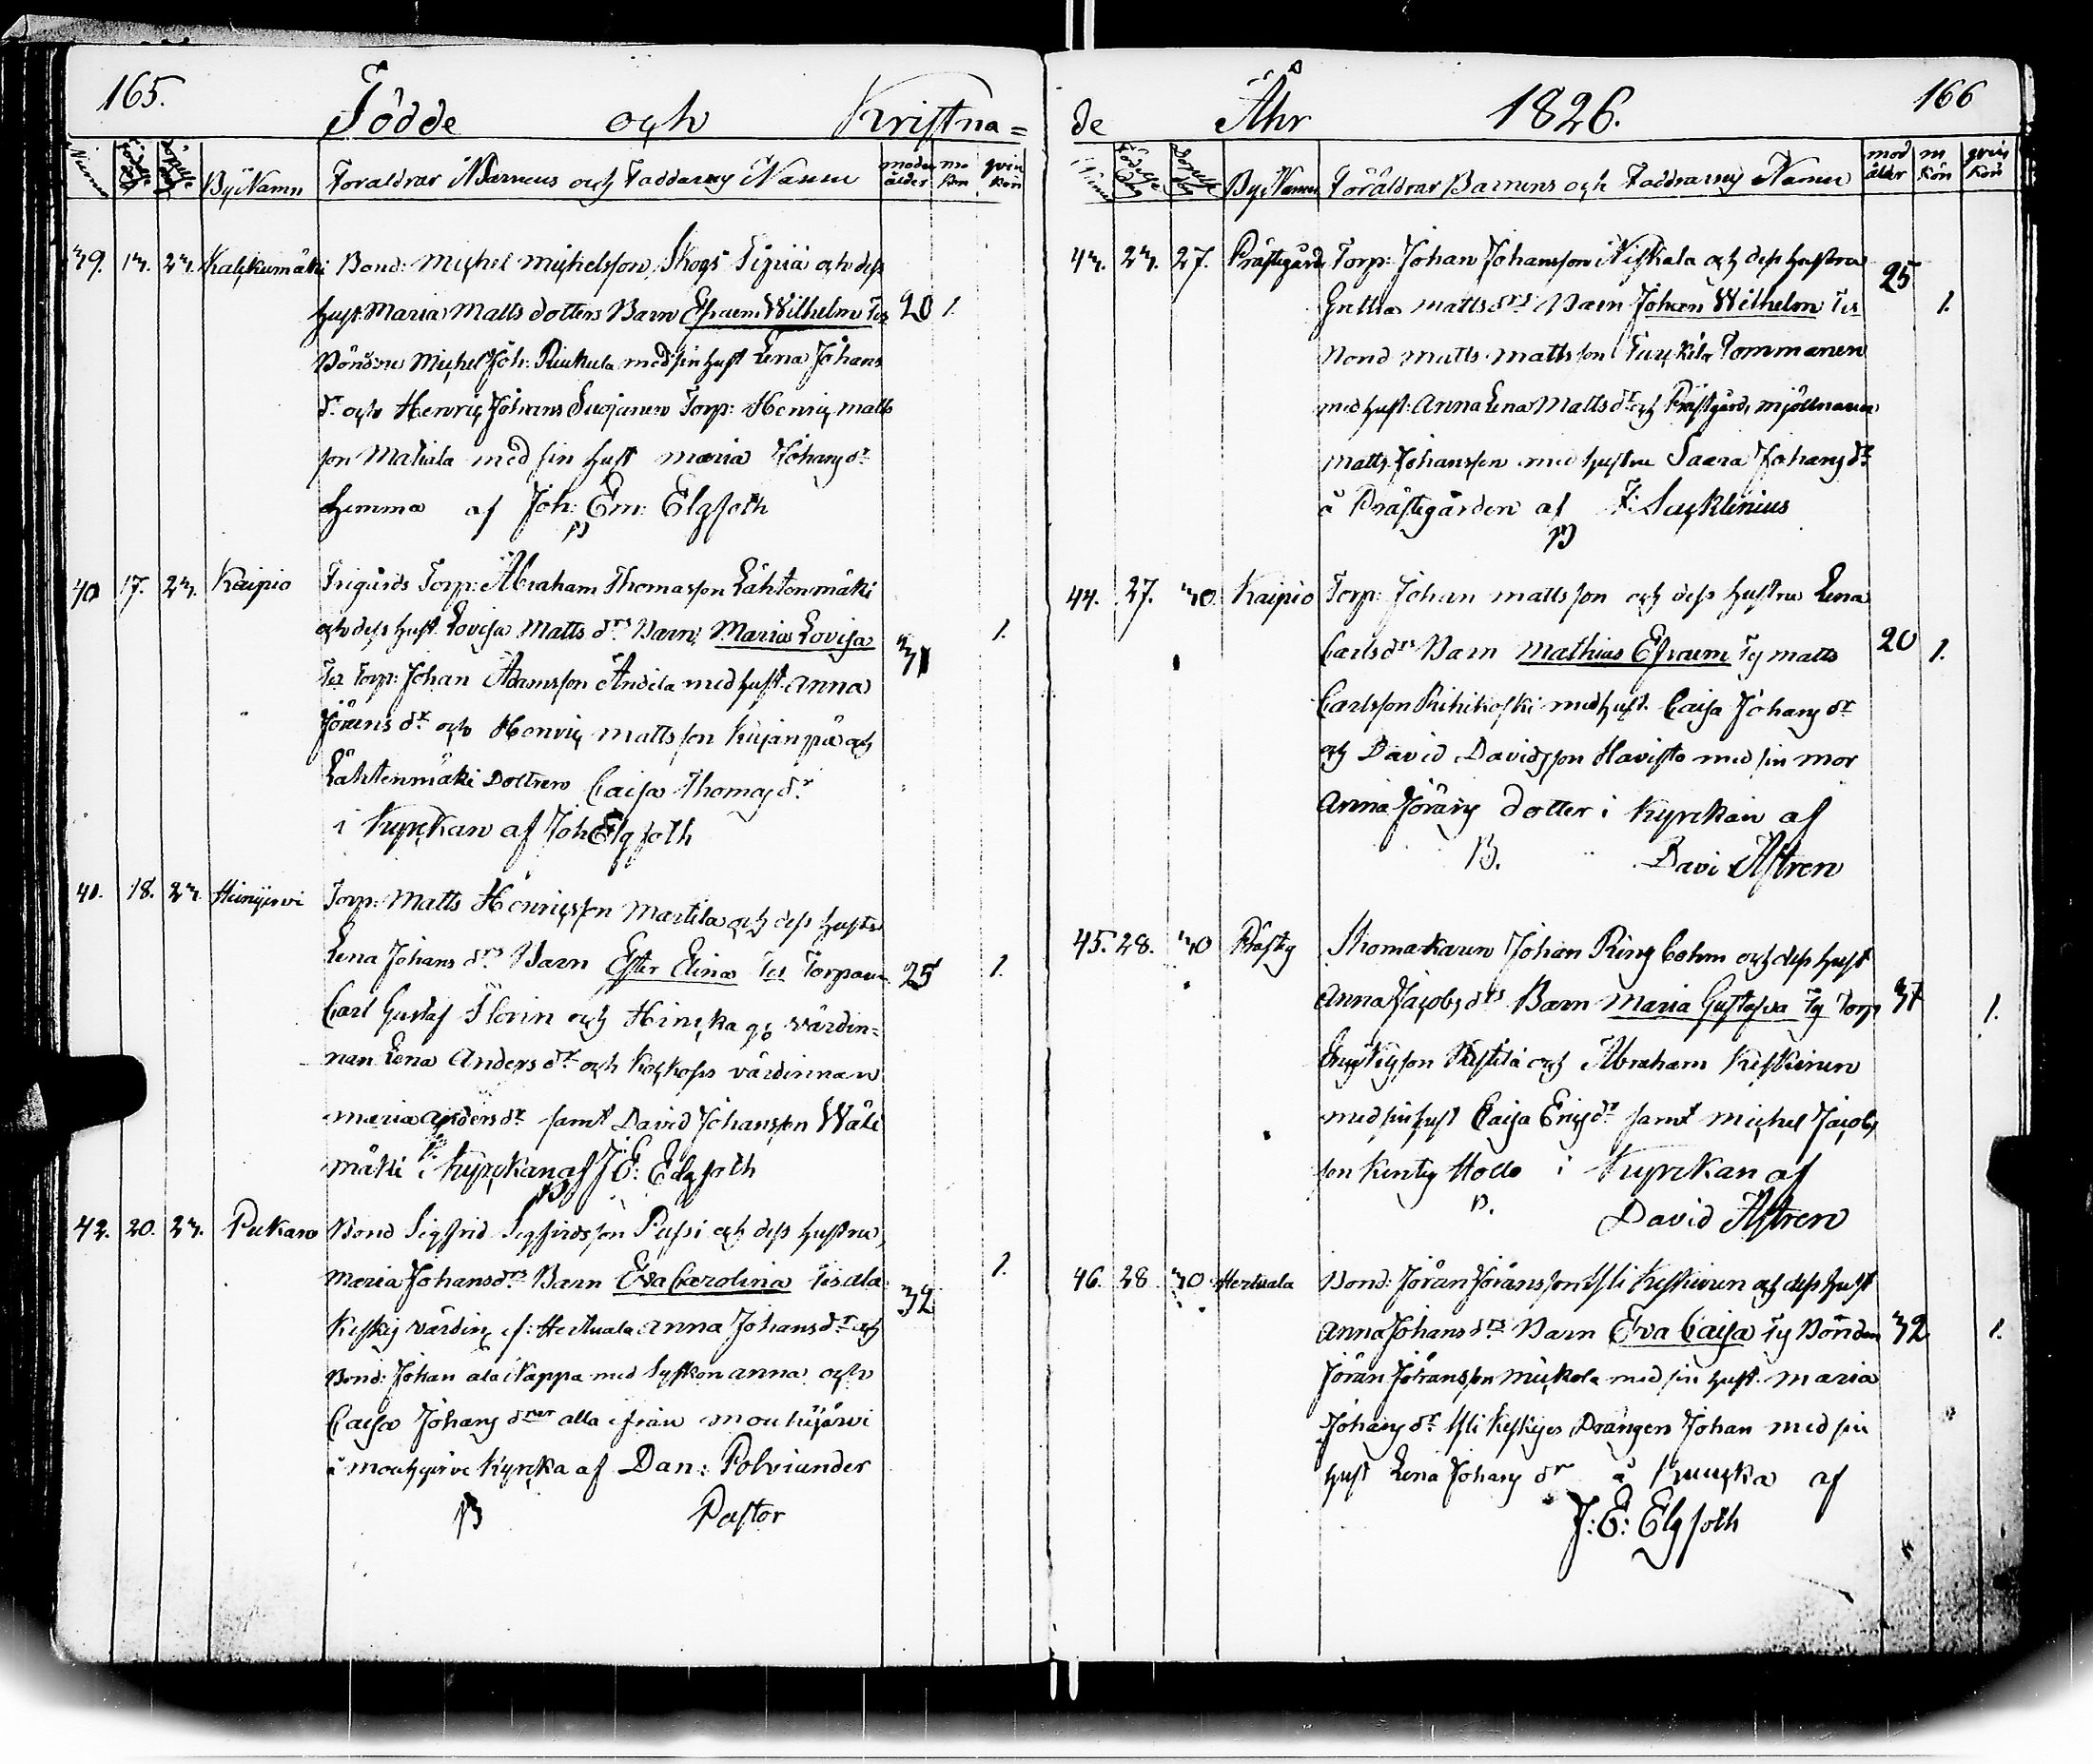 165.
Födde och Kristna=
ByNamn Foraldrar Barnens och Faddarnes Namn moders ålder m. kön qvin kön
39. 13. 23. Bond: Michel Michelsson Skogs Tipiä och dess
hust. Maria Matts dotters Barn Efraem Wilhelm Tes 20 1.
Bönderne Michel Joh: med sin hust Lena Johans
dr och Henric Johans Suojanen Torp: Henric matts
son Matiala med sin hust maria Johans dr
hemma af Joh: Em: Elgfoth
B
40 17. 23. Kaipio Torp: Abraham Thomasson Lähtenmäki
och dess hust. Lovisa Matts drs Barn Maria Lovisa 31 1.
Tes Torp: Johan Adamsson Andila med hust. Anna
Jörens dr och Henric mattsson Kujanpä och
Lähtenmäki Dottren Caisa Thomas dr
i Kyrckan af Joh Elgfoth
41. 18. 23. Heinijervi Torp: Matts Henricsson Martila och dess hustru
Lena Johans drs Barn Ester Elina Tes Torparen 25 1.
Carl Gustaf Florin och värdin=
nan Lena Anders dr och värdinnan
maria Anders dr samt David Johansson Wäli
mäki i Kyrckan af J E: Elgfoth
B
42. 20. 23. Pukara Bond Sigfrid Sigfridsson Pussi och dess hustru
Maria Johans drs Barn Eva Carolina Tes ala 1.
Keskis värdin if: Hertuala Anna Johans dr och 32
Bond: Johan ala Nappa med Syskon anna och
Caisa Johans drar alla ifrån mouhijärvi
i mouhijervi Kyrcka af Dan: Polviander
B Pastor
166
de Åhr 1826.
By Namn Föräldrar Barnens och Faddrarnes Namn mod ålder m kön qvin kön
43. 23. 27. Prästegård Torp: Johan Johansson Niskala och dess hustru 25
matts drs Barn Johan Wilhelm Tes 1.
Bond matts mattsson Tommanen
med hust: Anna Lena Matts dr och Prästgårds mjöllnaren
matts Johansson med hustru Saara Johans dr
å Prästegården af F: Sucklinius
B
44. 27. 30. Kaipio Torp: Johan mattsson och dess hustru Lena
Carls drs Barn Mathias Efraem Ts matts 20 1.
Carlsson Riihikoski med hust. Caisa Johans dr
och David Davidsson Havisto med sin mor
Anna Jörans dotter i Kyrckan af
B. Davi Åstren
45. 28. 30 Prästg Johan Ring bohm och dess hust
Anna Jacobs drs Barn Maria Gustafva Ts Torp 37 1.
och Abraham Keskinen
med sin hust Caisa Erics dr samt Michel Jacobs
son Hollo i Kyrckan af
B. David Åstren
46. 28 30 Hertuala Bond: Jöran Jöransson Yli Keskinen och dess hust
Anna Johans drs Barn Eva Caisa Ts Bonden 32 1.
Jöran Jöransson Mickola med sin hust. maria
Johans dr Yli Keskis Drängen Johan med sin
hust Lena Johans dr af
J: E: Elgfoth